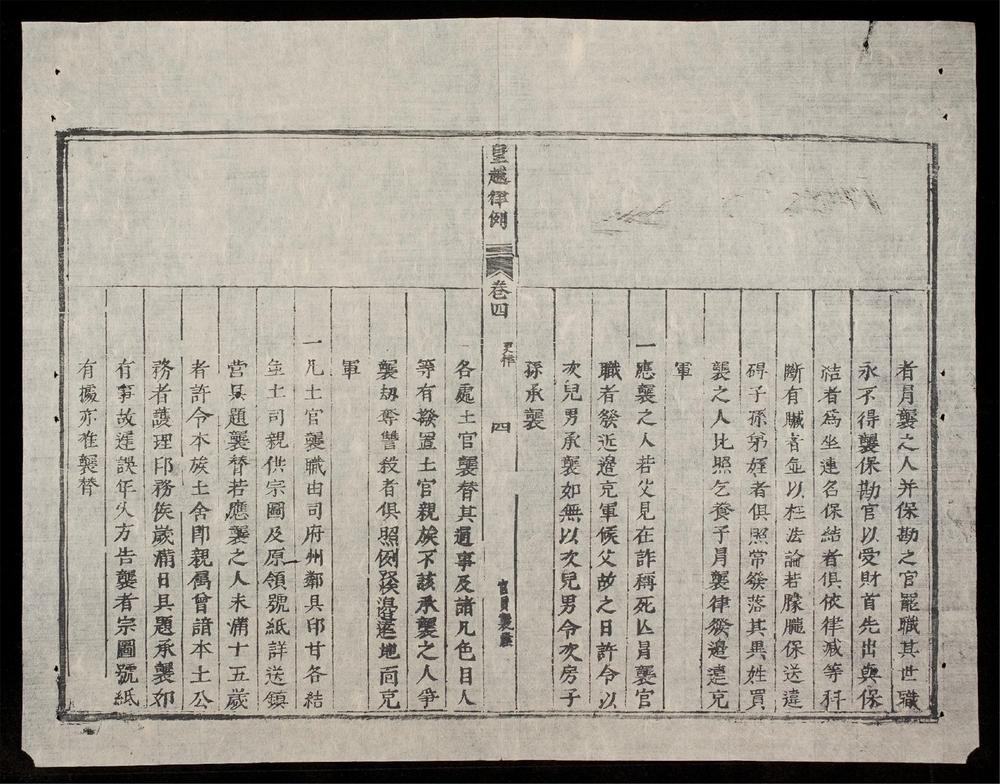 者冐襲之人并保勘之官罷職其世職
永不得襲保勘官以受財首先出與保
結者爲坐連名保結者俱依律减等科
斷有贓者並以枉法論若朦朧保送違
碍子孫弟姪者俱照常發落其異姓買
襲之人比照乞養子冐襲律發邊遠充
軍
一應襲之人若父見在詐稱死亾冐襲官
職者發近邊充軍候父故之日許令以
次兒男承襲如無以次兒男令次房子
孫承襲
皇越律例
卷四
吏律
四
官員襲廕
各處土官襲替其通事及諸凡色目人
等有撥置土官親族不該承襲之人爭
襲刼奪讐殺者俱照例發邊遠地面充
軍
一凡土官襲職由司府州鄰具印甘各結
並土司親供宗圖及原領號紙詳送鎮
營具題襲替若應襲之人未滿十五歲
者許令本族土舍卽親屬曾諳本土公
務者護理印務俟歲滿日具題承襲如
有事故遲誤年久方告襲者宗圖號紙
有據亦准襲替